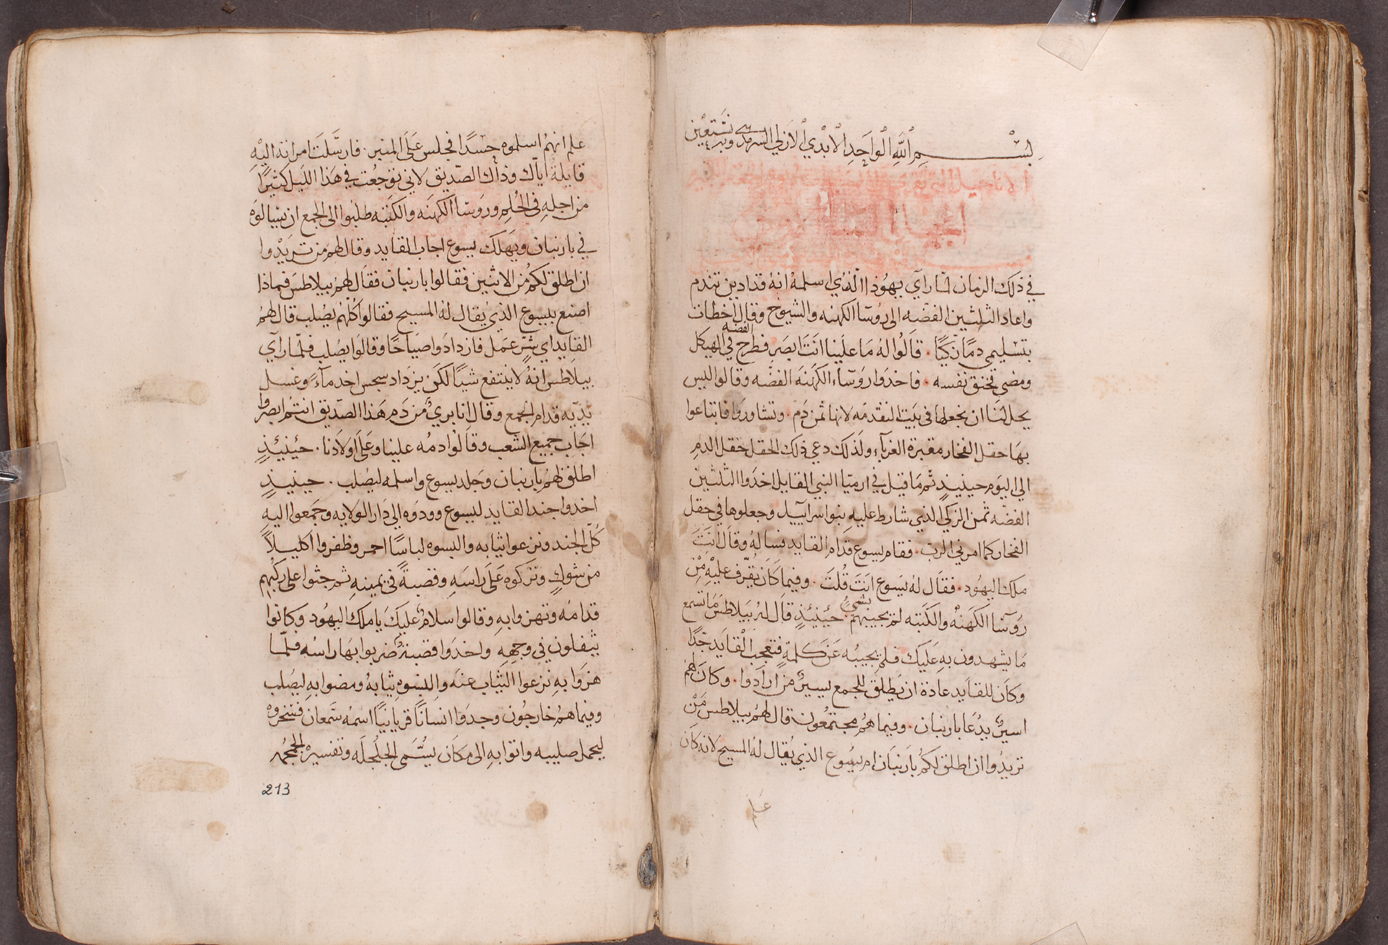 بسم الله الواحد الابدي الازلي السرمدي وبه نستعين
في ذلك الزمان لما راي يهودا الذي اسلمه انه قد ادين تندم
واعاد الثلثين الفضه الى روسآ الكهنه والشيوخ وقال اخطات
بتسليمي دمًا زكيًا . قالوا له ما علينا انت ابصر فطرح الفضه في الهيكل
ومضى فخنق نفسه . فاخدوا روسآء الكهنه الفضه وقالوا ليس
يحل لنا ان نجعلها في بيت التقدمه لانها ثمن دم . وتشاوروا فابتاعوا
بها حقل الفخار مقبرة الغربآء ولذلك دعي ذلك الحقل حقل الدم
الى اليوم حينيدٍ تم ما قيل في ارميا النبي القايل اخدوا الثلثين
الفضه ثمن الزكي الذي شارط عليه بنوا سرآييل وجعلوها في حقل
الفخار كما امرني الرب . فقام يسوع قدام القايد فساله وقال انت
ملك اليهود . فقال له يسوع انت قلت . وفيما كان يُقرف عليه من
روسآ الكهنه والكتبه لم يجيبهم بشي . حينيدٍ قال له بيلاطس ما تسمع
ما يشهدون به عليك فلم يجيبه عن كلمة فتعجب القايد جدًا
وكان للقايد عادة ان يطلق للجمع يسيرٌ من ارادوا . وكان لهم
اسيرٌ يدعا باربنان . وفيما هم مجتمعون قال لهم بيلاطس من
تريدوا ان اطلق لكم باربنان ام يسوع الذي يُقال له المسيح لانه كان
علم
علم انهم اسلموه حسدًا فجلس على المنبر . فارسلت امراته اليه
قايلة اياك وذاك الصديق لاني توجعت في هذا الليل كثيرًا
من اجله في الحلم وروسآ الكهنه والكتبه طلبوا الى الجمع ان يسالوه
في باربنان ويهلك يسوع اجاب القايد وقال لهم من تريدوا
ان اطلق لكم من الاثنين فقالوا باربنان فقال لهم بيلاطس فماذا
اصنع بيسوع الذي يقال له المسيح فقالوا كلهم يصلب قال لهم
القايد اي شرٍ عمل فازدادوا صياحًا وقالوا يصلب فلما راي
بيلاطس انه لا ينتفع شيًا لكن يزداد سجس اخد مآءً وغسل
يديه قدام الجمع وقال انا بريٌ من دم هذا الصديق انتم ابصروا
اجاب جميع الشعب وقالوا دمه علينا وعلى اولادنا . حينيدٍ
اطلق لهم باربنان وجلد يسوع واسلمه ليصلب . حينيدٍ
اخدوا جند القايد ليسوع وودوه الى دار الولايه وجمعوا اليه
كل الجند ونزعوا ثيابه والبسوه لباسًا احمر وظفروا اكليلاً
من شوك وتركوه على راسه وقصبةً في يمينه ثم جثوا على ركبهم
قدامه وتهزوا به وقالوا سلامٌ عليك يا ملك اليهود وكانوا
يتفلون في وجهه واخدوا قصبة ضربوا بها راسه فلما
هزوا به نزعوا الثياب عنه والبسوه ثيابه ومضوا به ليصلب
وفيما هم خارجون وجدوا انسانًا قريانيًا اسمه سمعان فسخروه
ليحمل صليبه واتوا به الى مكان يسمى الجلجله وتفسيره الجمجمه
213